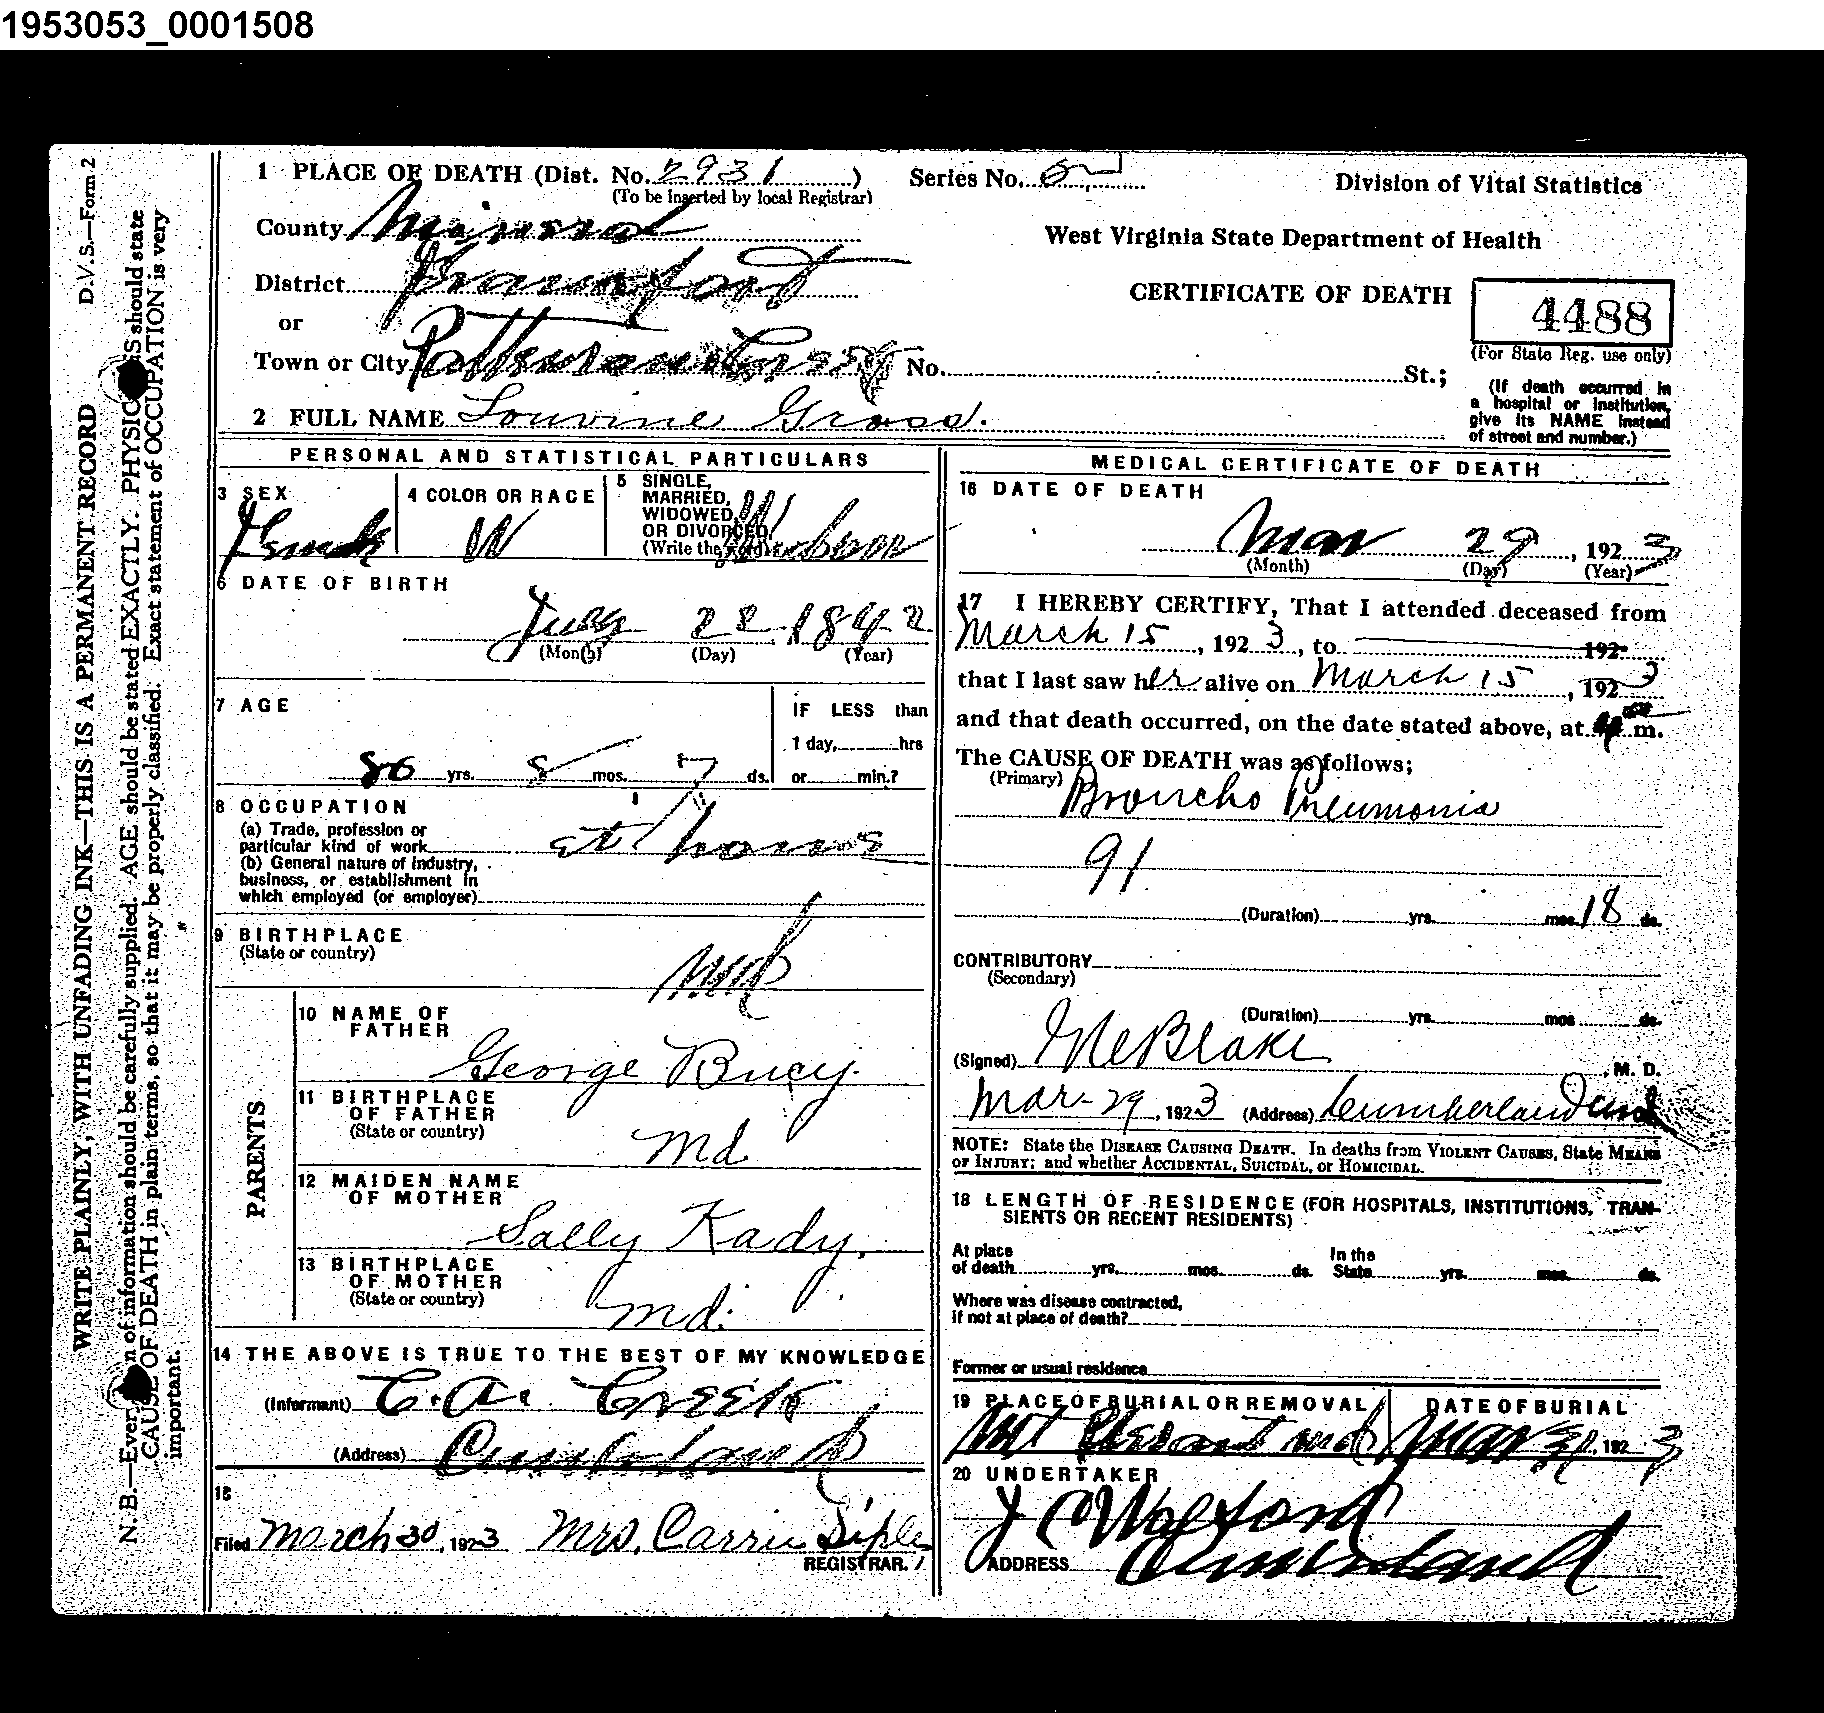 1953053_0001508
D.V.S.—Form 2
WRITE PLAINLY, WITH UNFADING INK—THIS IS A PERMANENT RECORD
N. B.—Every n of information should be carefully supplied. AGE should be stated EXACTLY. PHYSIC S should state
CAUSE OF DEATH in plain terms, so that it may be properly classified. Exact statement of OCCUPATION is very
important.
1 PLACE OF DEATH (Dist. No. 2931 ) Series No.
(To be inserted by local Registrar)
Division of Vital Statistics
County Mineral
West Virginia State Department of Health
District Frankfort
CERTIFICATE OF DEATH
4488
or
(For State Reg. use only)
Town or City Patterson Creek No. St.;
(If death occurred in
a hospital or institution,
give its NAME instead
of street and number.)
2 FULL NAME Louvine Gross.
PERSONAL AND STATISTICAL PARTICULARS
3 SEX
Female
4 COLOR OR RACE
W
5 SINGLE,
MARRIED,
WIDOWED,
OR DIVORCED
(Write the word)
6 DATE OF BIRTH
July 22 1842
(Month) (Day) (Year)
7 AGE
80 yrs. 8 mos. 7 ds.
IF LESS than
1 day, hrs
or min.?
8 OCCUPATION
(a) Trade, profession or
particular kind of work at home
(b) General nature of industry,
business, or establishment in
which employed (or employer)
9 BIRTHPLACE
(State or country)
Md
PARENTS
10 NAME OF
FATHER
George Bucy.
11 BIRTHPLACE
OF FATHER
(State or country)
Md
12 MAIDEN NAME
OF MOTHER
Sally Kady.
13 BIRTHPLACE
OF MOTHER
(State or country)
Md.
14 THE ABOVE IS TRUE TO THE BEST OF MY KNOWLEDGE
(Informant) C. A. Creek
(Address) Cumberland
15
Filed March 30, 1923 Mrs. Carrie Siple
REGISTRAR.
MEDICAL CERTIFICATE OF DEATH
16 DATE OF DEATH
Mar 29, 1923
(Month) (Day) (Year)
17 I HEREBY CERTIFY, That I attended deceased from
March 15, 1923, to 192
that I last saw her alive on March 15, 1923
and that death occurred, on the date stated above, at m.
The CAUSE OF DEATH was as follows;
(Primary) Broncho Pneumonia
91
(Duration) yrs. mos. 18 ds.
CONTRIBUTORY
(Secondary)
(Duration) yrs. mos ds.
(Signed) Blake, M. D.
Mar- 29, 1923 (Address) Cumberland Md
NOTE: State the DISEASE CAUSING DEATH. In deaths from VIOLENT CAUSES, State MEANS
OF INJURY; and whether ACCIDENTAL, SUICIDAL, or HOMICIDAL.
18 LENGTH OF RESIDENCE (FOR HOSPITALS, INSTITUTIONS, TRAN-
SIENTS OR RECENT RESIDENTS)
At place
of death yrs. mos. ds. In the
State yrs. mos. ds.
Where was disease contracted,
if not at place of death?
Former or usual residence
19 PLACE OF BURIAL OR REMOVAL
Mt Plesant Md
DATE OF BURIAL
Mar 31, 1923
20 UNDERTAKER
J C Wolford
ADDRESS Cumberland